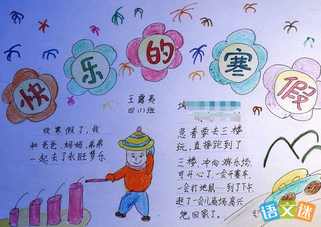 快乐的寒假
王露英
四(1)班
放寒假了,我
和爸爸、妈妈、弟弟
一起去了永旺梦乐
急着要去三楼
玩,直接跑到了
三楼,冲向游乐场,
可开心了,一会开赛车,
一会打地鼠
赶了一会儿
抱回家了。
语文迷